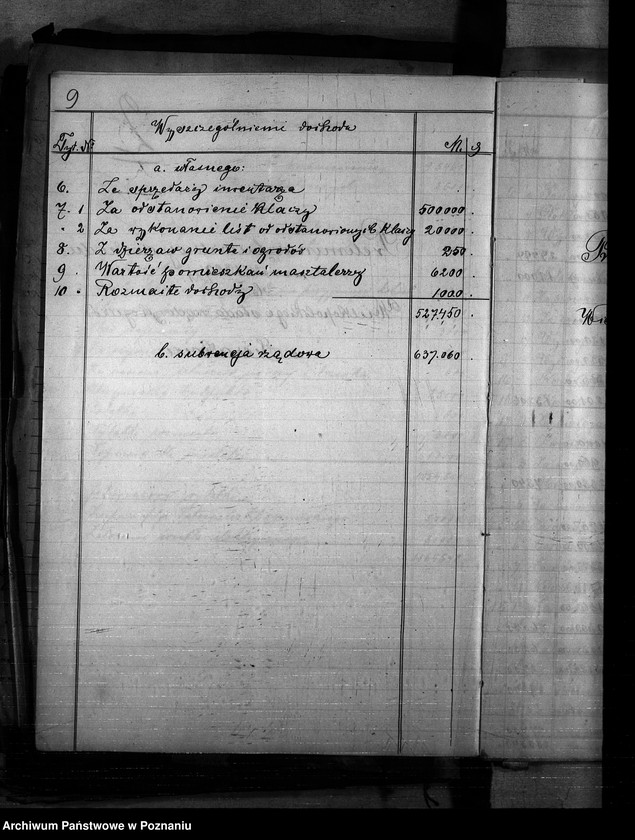 9
Wyszczególnienie dochodu
Tyt. № M. ₰
a. własnego:
6. Ze sprzedaży inwentarza
7. 1 Za odstanowienie klaczy 500000 .
" 2 Za wykonanie list od odstanowionych klaczy 20000 .
8. Z dzierżaw gruntu i ogrodów 250 .
9. Wartość pomieszkań masztalerzy 6200 .
10. Rozmaite dochody 1000 .
527.450 .
b. subwencja rządowa 637.060 .
Archiwum Państwowe w Poznaniu